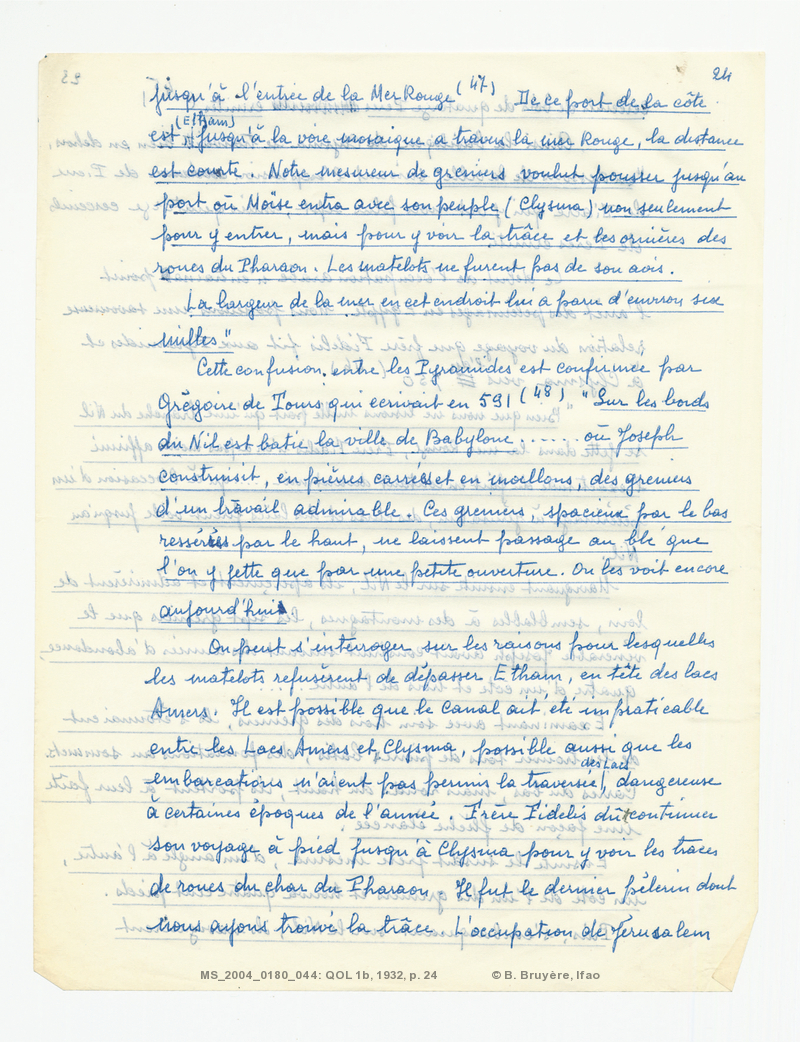 24
jusqu'à l'entrée de la Mer Rouge (47) De ce port de la côte
(Etham)
est jusqu'à la voie mosaïque a travers la mer Rouge, la distance
est courte. Notre mesureur de greniers voulut pousser jusqu'au
port où Moïse entra avec son peuple (Clysma) non seulement
pour y entrer, mais pour y voir la trâce et les ornières des
roues du Pharaon. Les matelots ne furent pas de son avis.
La largeur de la mer en cet endroit lui a paru d'environ six
milles"
Cette confusion entre les Pyramides est confirmée par
Grégoire de Tours qui écrivait en 591 (48) "Sur les bords
du Nil est batie la ville de Babylone ....... où Joseph
construisit, en pierres carrées et en moellons, des greniers
d'un travail admirable. Ces greniers, spacieux par le bas
resserrés par le haut, ne laissent passage au blé que
l'on y jette que par une petite ouverture. On les voit encore
aujourd'hui.
On peut s'interroger sur les raisons pour lesquelles
les matelots refusèrent de dépasser Etham, en tête des lacs
Amers. Il est possible que le Canal ait été impraticable
entre les Lacs Amers et Clysma, possible aussi que les
des Lacs
embarcations n'aient pas permis la traversée, dangereuse
à certaines époques de l'année. Frère Fidelis dût continuer
son voyage à pied jusqu'à Clysma pour y voir les traces
de roues du char du Pharaon. Il fut le dernier pèlerin dont
nous ayons trouvé la trâce. L'occupation de Jérusalem
MS_2004_0180_044: QOL 1b, 1932, p. 24 © B. Bruyère, Ifao